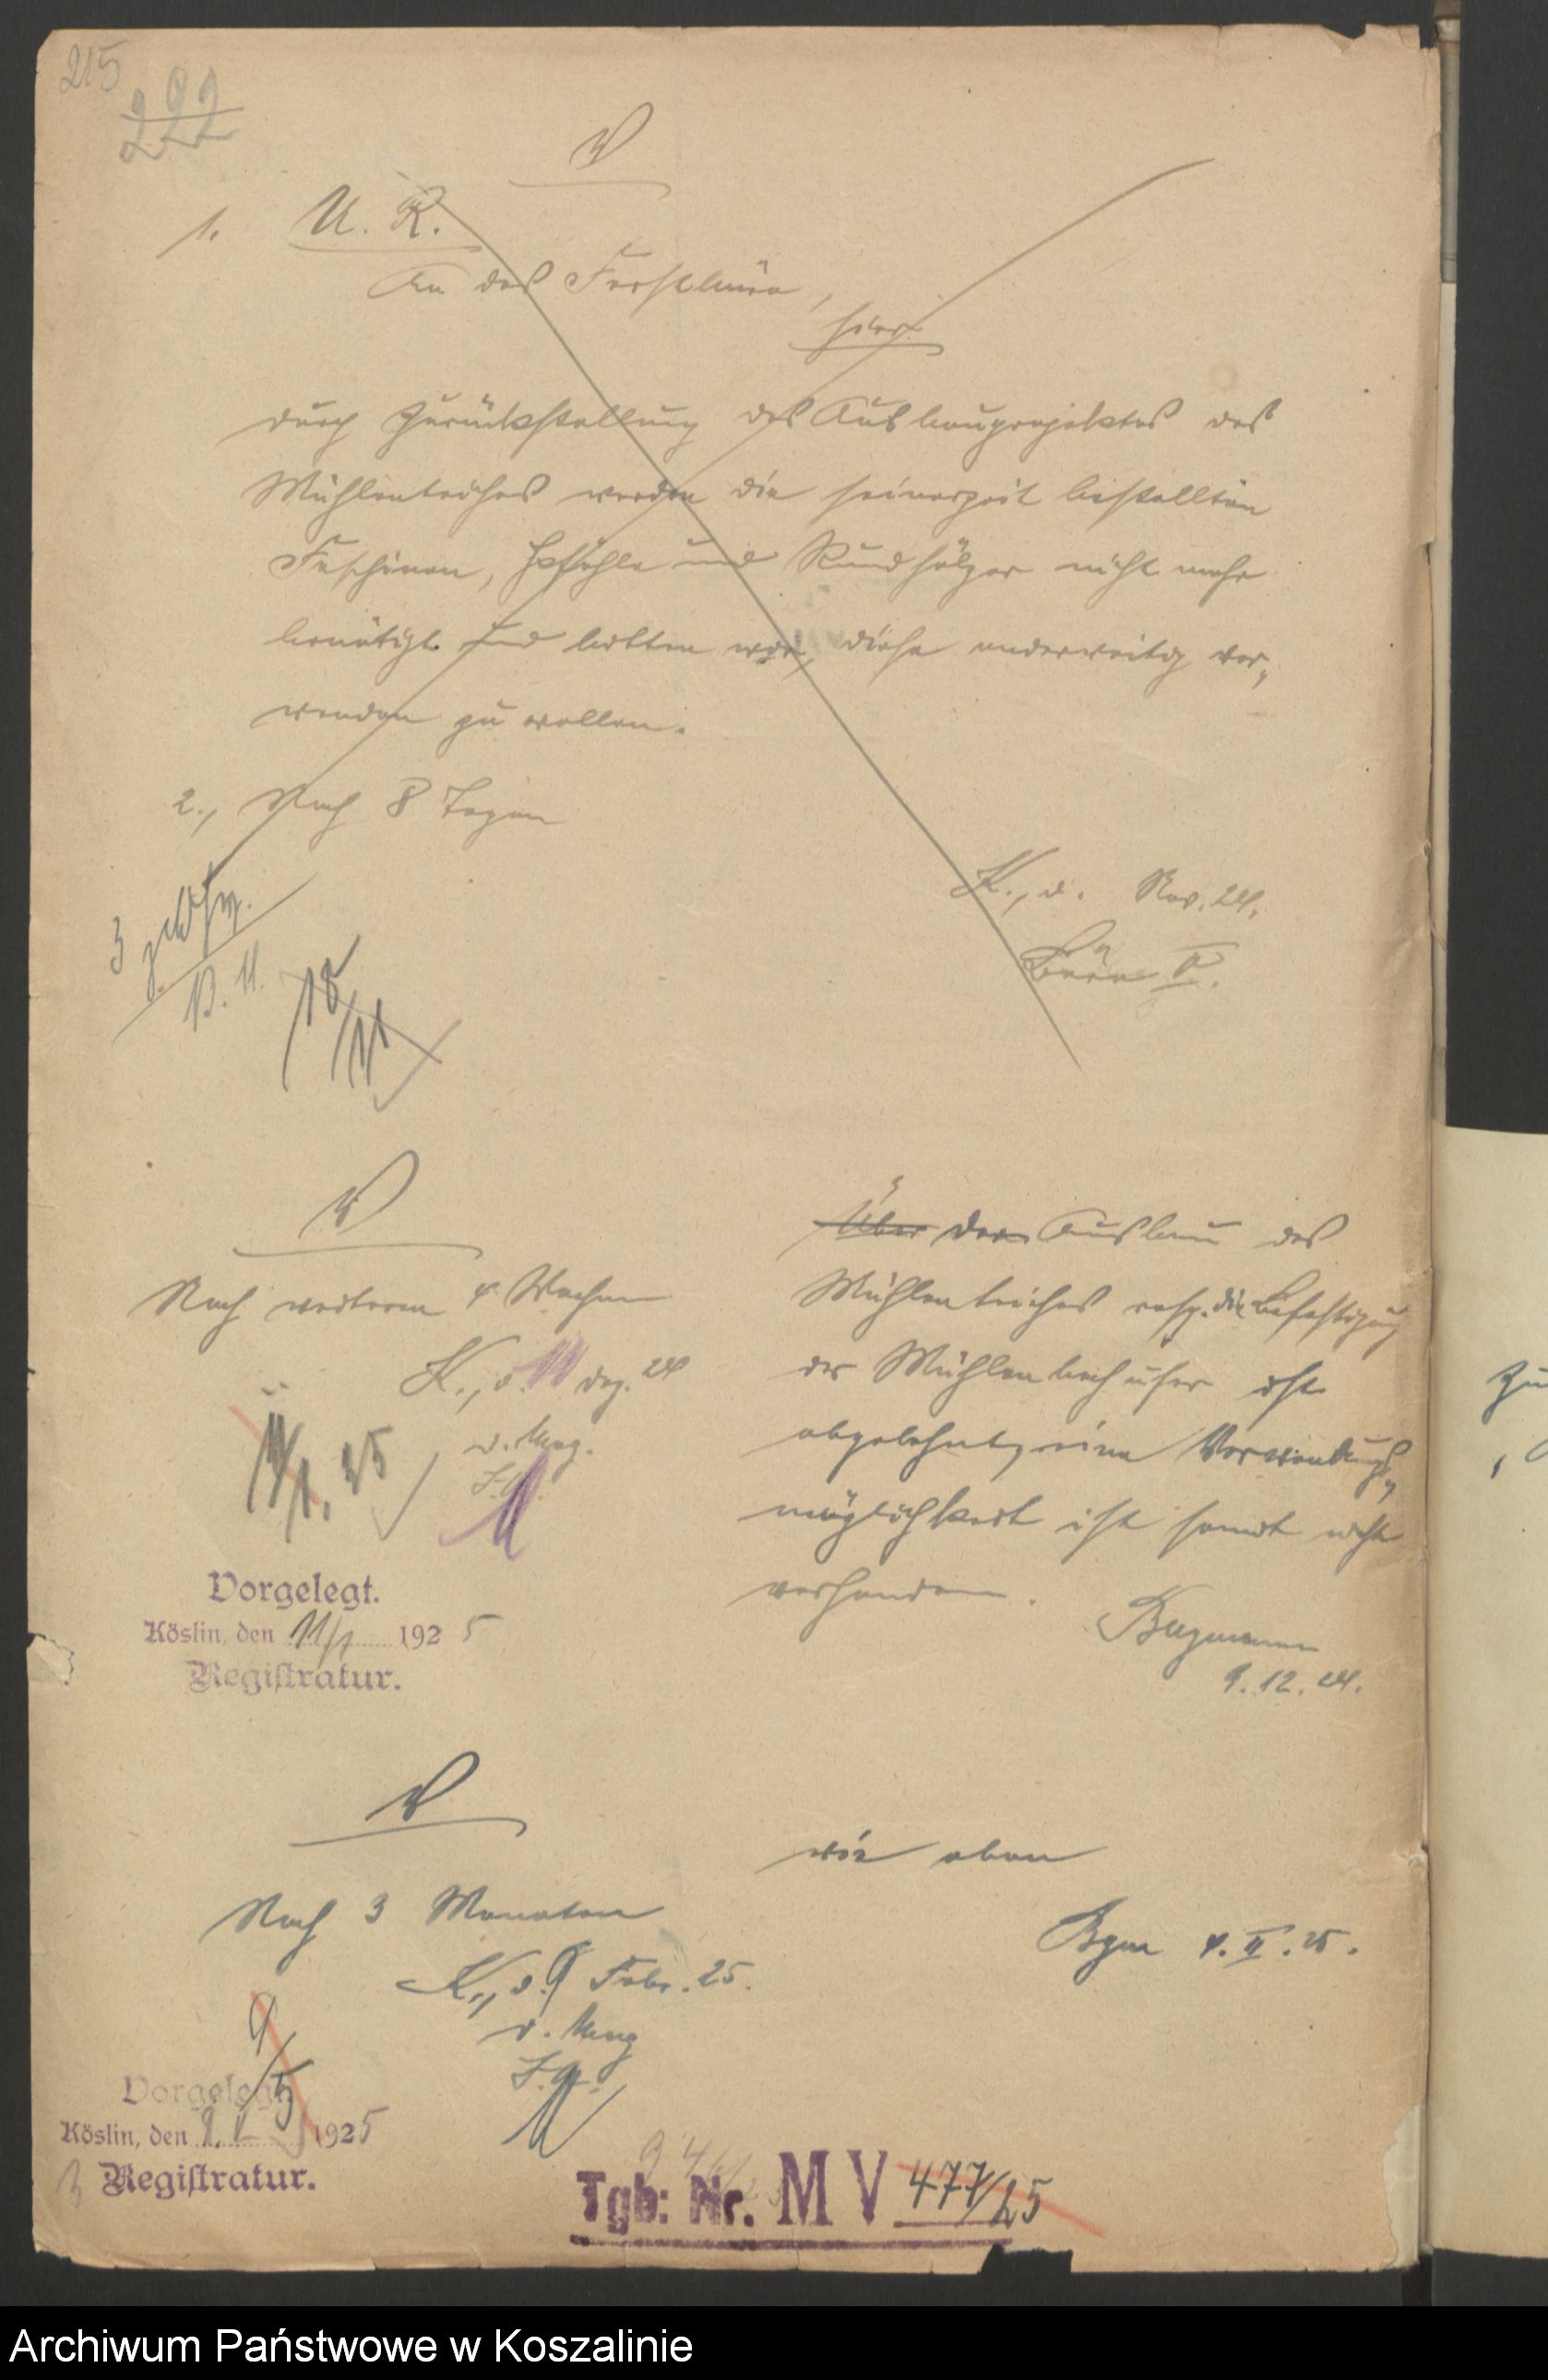 215
222
V
1. U. R.
An das Forstbüro,
hier.
Durch Zurückstellung des Ausbauprojektes des
Mühlenteiches werden die seinerzeit bestellten
Faschinen, Pfähle und Rundhölzer nicht mehr
benötigt und bitten wir, diese anderweitig ver-
wenden zu wollen.
2., Nach 8 Tagen
K., d. Nov. 24.
Büro V.
3
13. 11.
18/11
V
Nach weiteren 4 Wochen
K., d. 11 Dez. 24
D. Mag.
I. A.
11/1. 25
Vorgelegt.
Köslin, den 11/1 1925
Registratur.
Über Der Ausbau des
Mühlenteiches resp. die Befestigung
der Mühlenbachufer ist
abgelehnt, eine Verwendungs-
möglichkeit ist somit nicht
vorhanden.
9. 12. 24.
V
Nach 3 Monaten
K., d. 9 Febr. 25.
D. Mag
I. A.
wie oben
4. II. 25.
9/5
Vorgelegt
Köslin, den 9. V 1925
Registratur.
Tgb: Nr. M V 477/25
Archiwum Państwowe w Koszalinie